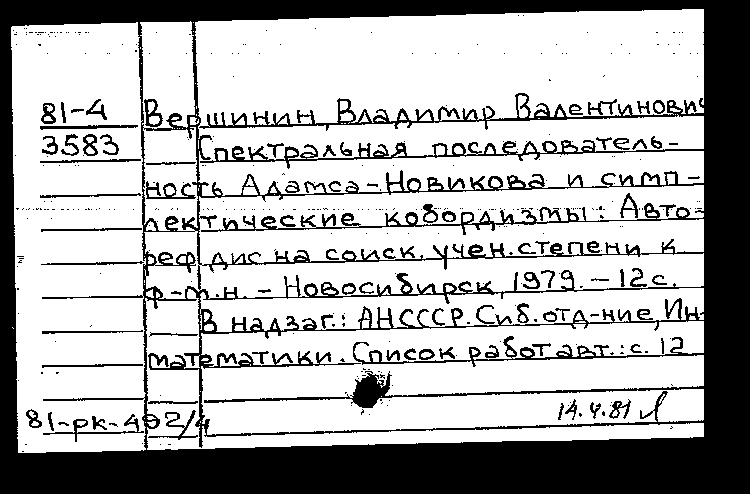 81-4 Вершинин, Владимир Валентинович
3583 Спектральная последователь-
ность Адамса-Новикова и симп-
лектические кобордизмы: Авто-
реф. дис. на соиск. учен. степени к.
ф-т.н. - Новосибирск, 1979. - 12 с.
В надзаг.: АН СССР. Сиб. отд-ние, Ин-
математики. Список работ авт.: с. 12
81-рк-492/4 14.4.81